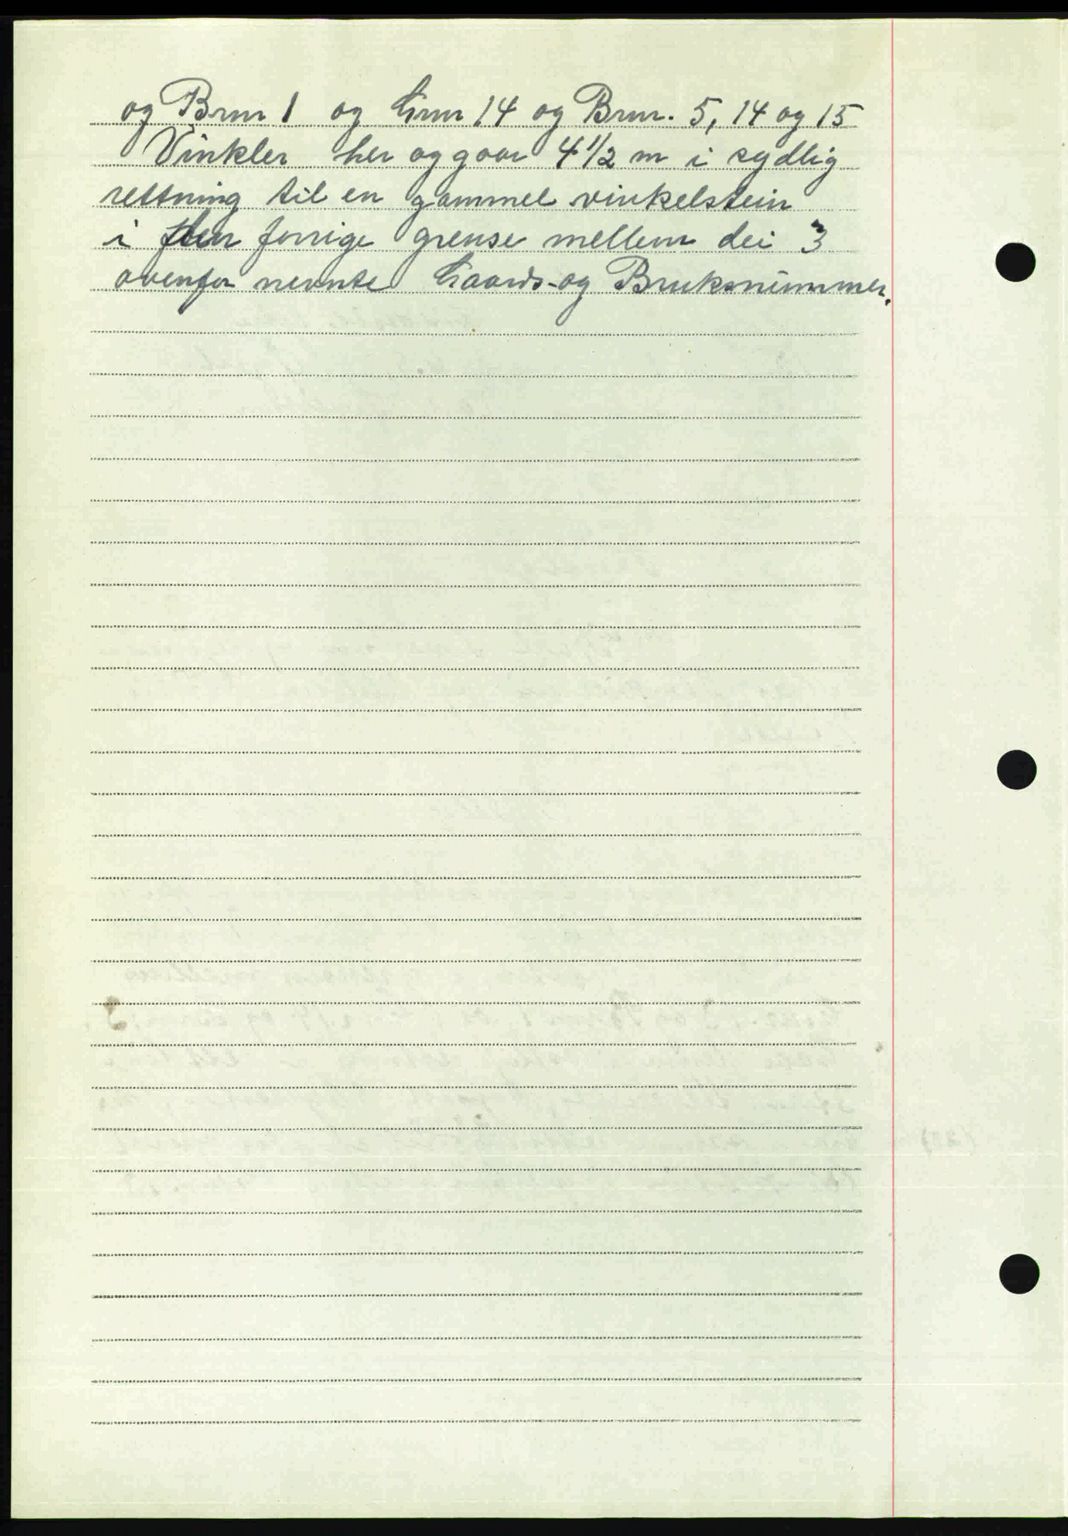 og Brnr 1 og Gnr 14 og Brnr. 5, 14 og 15
Vinkler her og gaar 4 1/2 m i sydlig
rettning til en gammel vinkelstein
i den forrige grense mellem dei 3
ovenfor nevnte Gaards- og Bruksnummer.